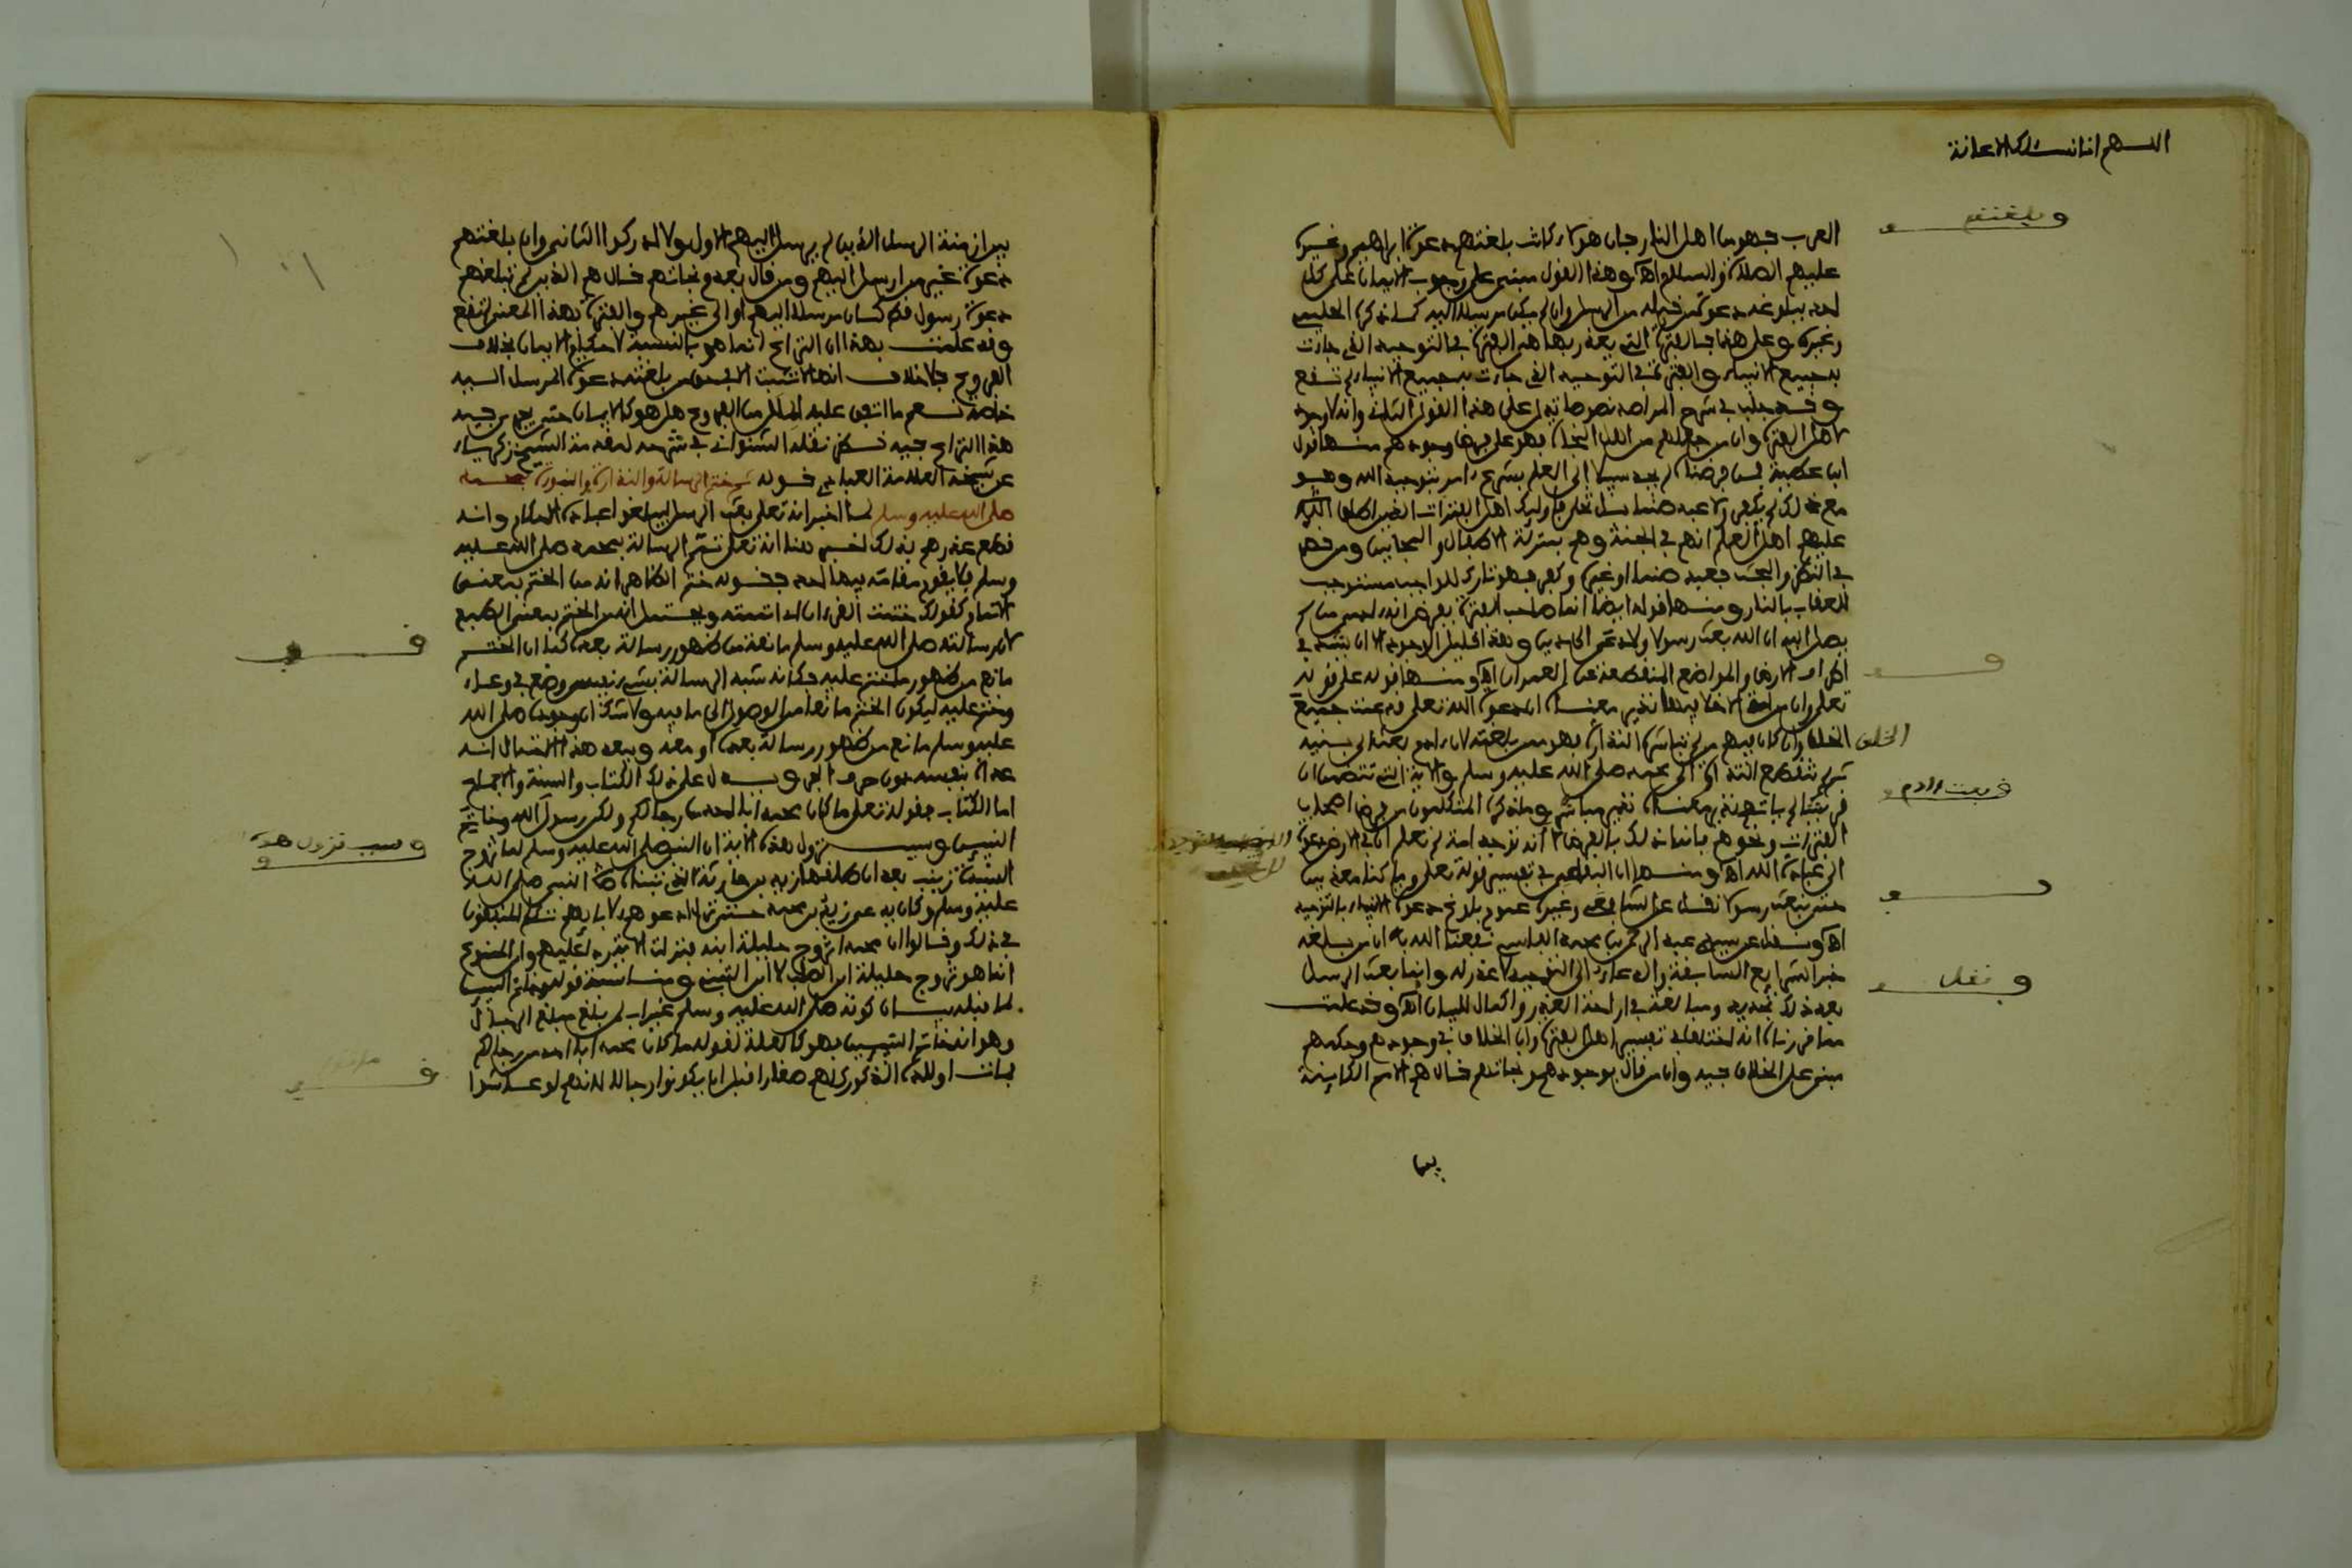 اللهم انا نسئلك الاعانة
العرب فهو من اهل النار فان هؤلاء كانت بلغتهم دعوة ابراهيم وغيره
عليهم الصلاة والسلام اه وهذا القول مبني على وجوب الايمان على كل
احد ببلوغه دعوة من قبله من الرسل وان لم يكن مرسلا اليه كما ذكره الحليمي
وغيره وعلى هذا فالفترة التي يعذر بها هي الفترة في التوحيد الذي جاءت
به جميع الانبياء والفترة في التوحيد الذي جاءت به جميع الانبياء لم تقع
وقد جلب في شرح المراصد نصوصا تدل على هذا القول الثاني وانه لا وجود
لاهل الفترة وان من جعلهم من اهل النجاة فهو على فرض وجودهم منها قول
ابن عطية فمن فرضناه لم يجد سبيلا الى العلم بشرع ولا بتوحيد الله وهو
مع ذلك لم يكفر ولا عبد صنما بل تخلى فاولئك اهل الفترات الذين اطلق
عليهم اهل العلم انهم في الجنة وهم بمنزلة الاطفال والمجانين ومن قصر
في النظر والبحث فعبد صنما او غيره وكفر فهو تارك للواجب مستوجب
للعقاب بالنار ومنها قوله ايضا انما صاحب الفترة يفرض انه ادمي من لم
يصل اليه ان الله بعث رسولا ولا دعى الى دين وهذا قليل الوجود الا ان يشذ في
اطراف الارض والمواضع المنقطعة عن العمران اه ومنها قوله على قوله
تعلى وان من امة الا خلا فيها نذير معناه ان دعوة الله تعلى قد عمت جميع
الخلق وان كان فيهم من لم تباشره النذارة فهو ممن بلغته لان ادم بعث الى بنيه
ثم لم تنقطع النذارة الى محمد صلى الله عليه وسلم والاية التي تتضمن ان
قريشا لم ياتهم نذير معناه نذير مباشر وما ذكره المتكلمون من فرض اصحاب
الفترات ونحوهم فانما ذلك بالفرض لا انه توجد امة لم تعلم ان في الارض دعوة
الى عبادة الله اه ومنها ان البقاعي في تفسير قوله تعلى وما كنا معذبين
حتى نبعث رسولا نقل عن الشافعي وغيره عموم بلوغ دعوة الانبياء بالتوحيد
اه ونقل عن سيدي عبد الرحمن بن محمد الفاسي نفعنا الله به ان من بلغه
خبر الشرايع السابقة والدعاء الى التوحيد لا عذر له وانما بعث الرسل
بعد ذلك تجديد ومبالغة في ازاحة العذر واكمال للبيان اه وقد علمت
مما قررناه انه اختلف في تفسير اهل الفترة وان الخلاف في وجودهم وحكمهم
مبني على الخلاف فيه وان من قال بوجودهم ونجاتهم قال هم الامم الكاينة
بين
وبلغتهم
الخلق
وبعث ادم
ونقل
بين ازمنة الرسل الذين لم يرسل اليهم الاول ولا ادركوا الثاني وان بلغتهم
دعوة غير من ارسل اليهم ومن قال بعدم نجاتهم قال هم الذين لم تبلغهم
دعوة رسول قط كان مرسلا اليهم او الى غيرهم والفترة بهذا المعنى لم تقع
وقد علمت بهذا ان النزاع انما هو بالنسبة لاحكام الايمان بخلاف
الفروع فلا خلاف انها لا تثبت الا في حق من بلغته دعوة المرسل اليه
خاصة نعم ما اتفق عليه الملل من الفروع هل هو كالايمان حتى يجري فيه
هذا النزاع فيه نظر نقله الشنواني في شرحه لمقدمة الشيخ زكرياء
عن شيخه العلامة العبادي قوله ثم ختم الرسالة والنذارة والنبوة بمحمد
صلى الله عليه وسلم لما اخبر انه تعلى بعث الرسل ليبلغوا عباده الاحكام وانه
قطع عذرهم بذلك اخبر هنا انه تعلى تمم الرسالة بمحمد صلى الله عليه
وسلم فلا يقوم مقامه فيها احد فقوله ختم الظاهر انه من الختم بمعنى
الاتمام كقولك ختمت القرءان اذا اتممته ويحتمل انه من الختم بمعنى الطبع
لان رسالته صلى الله عليه وسلم مانعة من ظهور رسالة بعده كما ان الختم
مانع من ظهور ما ختم عليه فكانه شبه الرسالة بشيء نفيس وضع في وعاء
وختم عليه ليكون الختم مانعا من الوصول الى ما فيه ولا شك ان وجوده صلى الله
عليه وسلم مانع من ظهور رسالة بعده او معه ويبعد هذا الاحتمال انه
عداه بنفسه دون حرف الجر ويدل على ذلك الكتاب والسنة والاجماع
اما الكتاب فقوله تعلى ما كان محمد ابا احد من رجالكم ولكن رسول الله وخاتم
النبيين وسبب نزول هذه الاية ان النبي صلى الله عليه وسلم لما تزوج
السيدة زينب بعد ان طلقها زيد بن حارثة الذي تبناه النبي صلى الله
عليه وسلم وكان يدعى زيد بن محمد حتى نزل ادعوهم لابايهم تكلم المنافقون
في ذلك وقالوا ان محمدا تزوج حليلة ابنه فنزلت الاية ردا عليهم وان الممنوع
انما هو تزوج حليلة ابن الصلب لا ابن التبني ومناسبة قوله وخاتم النبيين
لما قبله بيان كونه صلى الله عليه وسلم غير اب لمن بلغ مبلغ الرجال
وهو انه خاتم النبيين فهو كالعلة لقوله ما كان محمد ابا احد من رجالكم
فمات اولاده الذكور كلهم صغارا قبل ان يكونوا رجالا لانهم لو عاشوا
وسبب نزول هذه